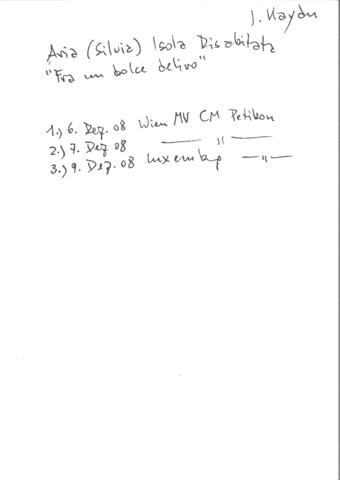 J. Haydn
Aria (Silvia) Isola Disabitata
"Fra un dolce deliro"
1.) 6. Dez. 08 Wien MV CM Petibon
2.) 7. Dez 08 —— " ——
3.) 9. Dez. 08 Luxemburg — " —